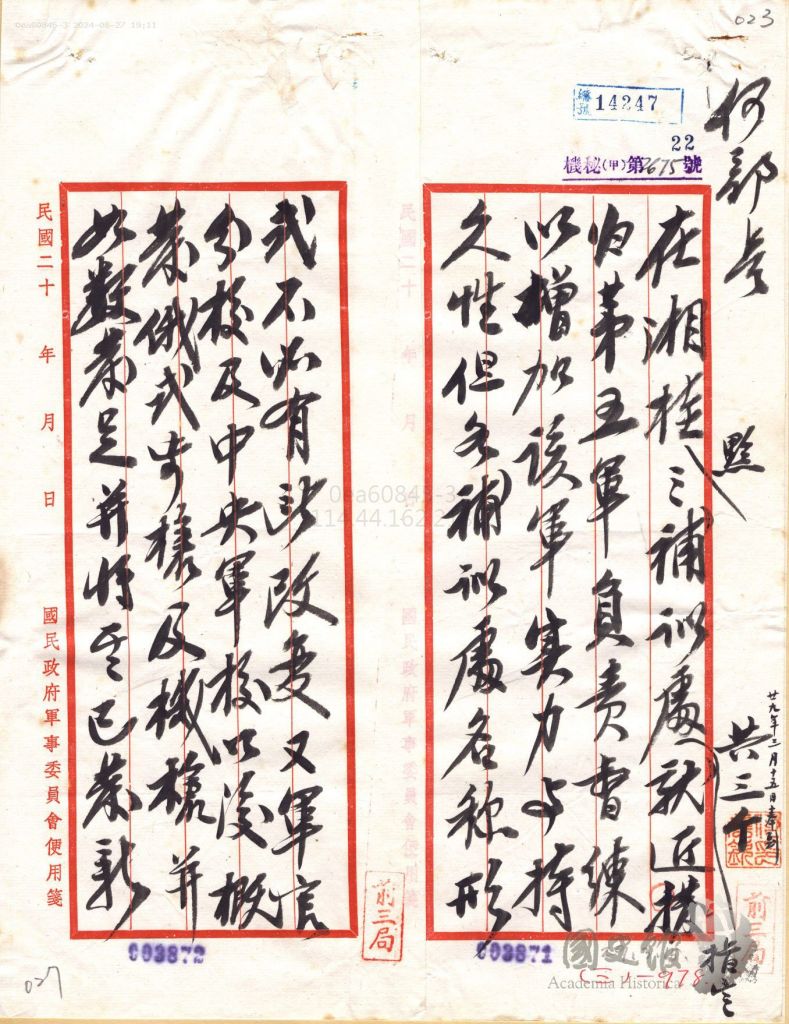 0ea60845-3 2024-08-27 19:11
023
編號 14247
22
機秘(甲)第2675號
何部長
在湘桂三補訓處就近撥
點
共三個
指定
归第五軍負責督練
以增加該軍實力与持
久性但各補訓處名稱形
式不必有所改变又軍官
分校及中央軍校以後概
發俄式步槍及機槍并
如數發足并將已發新
廿九年三月十五日奉到
民國二十 年 月 日
國民政府軍事委員會便用箋
民國二十 年 月 日
國民政府軍事委員會便用箋
前三局
前三局
003871
003872
0ea60843-3
114.44.162.2
國史館
Academia Historica
978
027